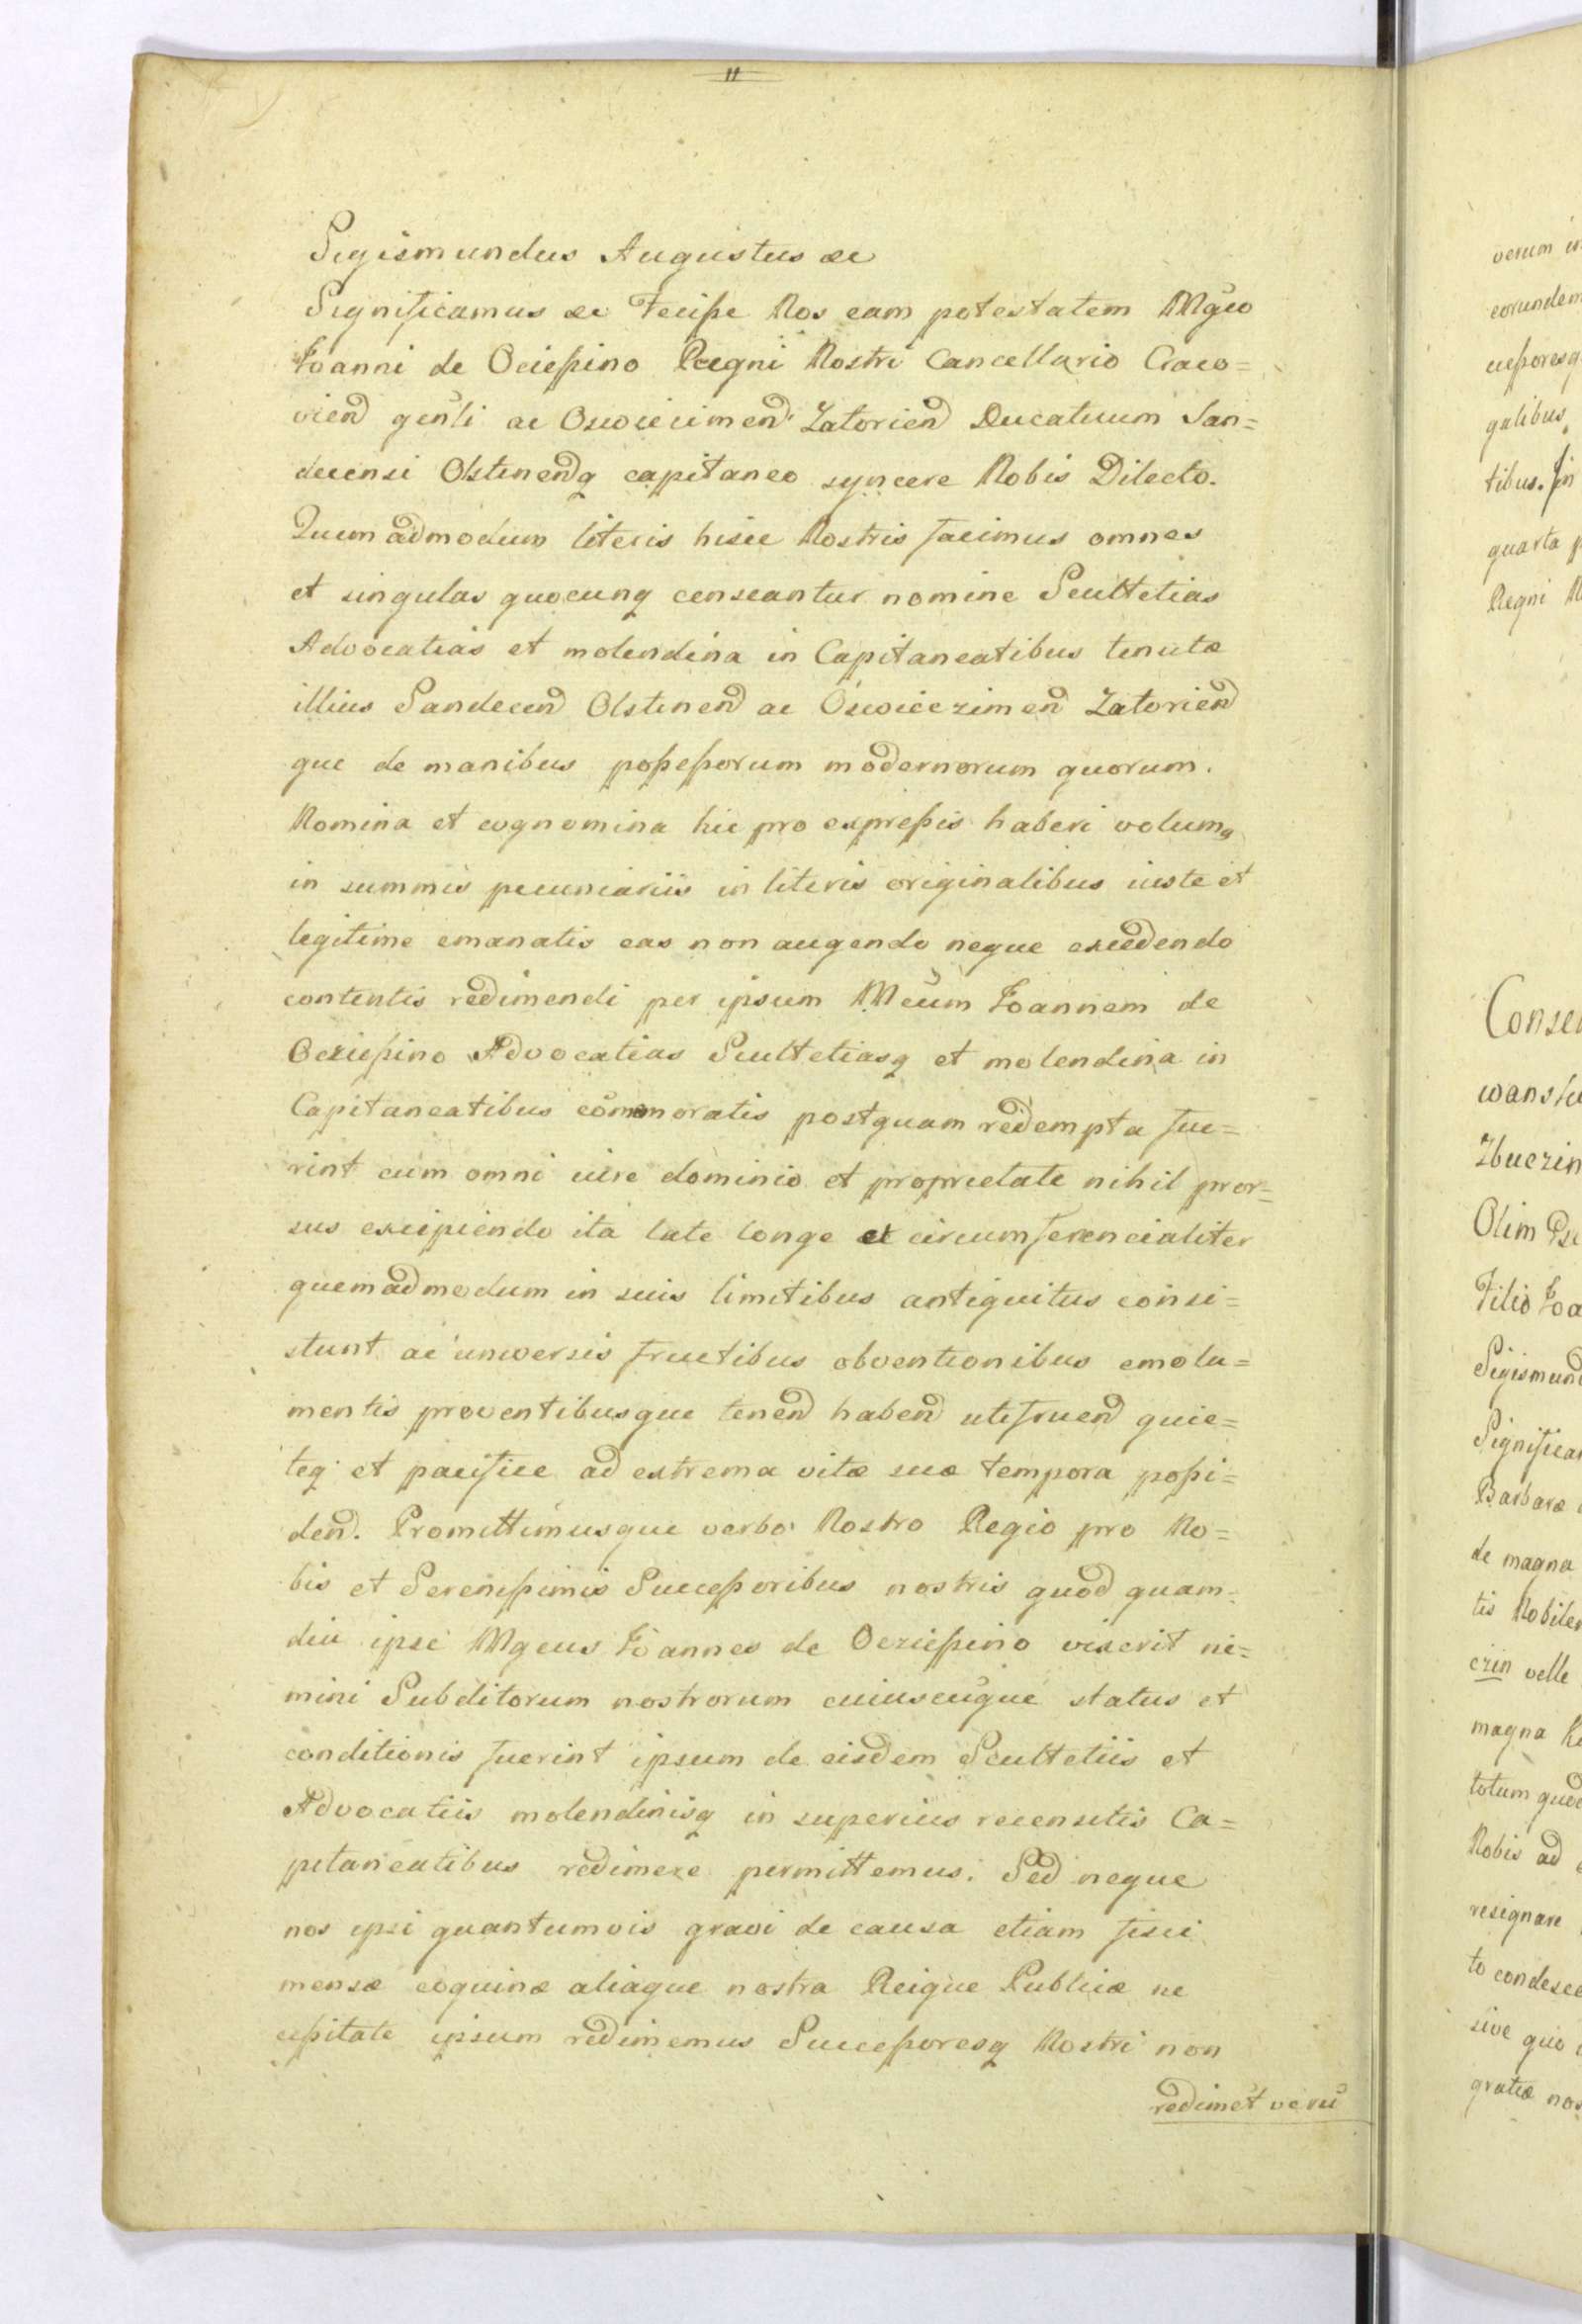 11
Sigismundus Augustus &c
Significamus &c Fecisse Nos eam potestatem Mgco
Joanni de Ociessino Regni Nostri Cancellario Craco=
vien gen̄li ac Oswiecimen Zatorien Ducatuum San=
decensi Olstinenq capitaneo syncere Nobis Dilecto.
Quemadmodum literis hisce Nostris facimus omnes
et singulas quocunq censeantur nomine Scultetias
Advocatias et molendina in Capitaneatibus tenutæ
illius Sandecen Olstinen ac Oswiecziмen Zatorien
que de manibus possessorum modernorum quorum.
Nomina et cognomina hic pro expressis haberi volumq
in summis pecuniariis in literis originalibus iuste et
legitime emanatis eas non augendo neque excedendo
contentis redimendi per ipsum Mcum Joannem de
Ocziessino Advocatias Scultetiasq et molendina in
Capitaneatibus com̄moratis postquam redempta fue=
rint cum omni iure dominio et proprietate nihil pror=
sus excipiendo ita late longe et circumferencialiter
quemadmodum in suis limitibus antiquitus consi=
stunt ac universis fructibus obventionibus emolu=
mentis proventibusque tenen haben utifruen quie=
teq et pacifice ad extrema vitæ suæ tempora possi=
den. Promittimusque verbo Nostro Regio pro No=
bis et Serenissimis Successoribus nostris quod quam=
diu ipse Mgcus Joannes de Ocziessino vixerit ne=
mini Subditorum nostrorum cuiuscūque status et
conditionis fuerint ipsum de eisdem Scultetiis et
Advocatiis molendinisq in superius recensitis Ca=
pitaneatibus redimere permittemus. Sed neque
nos ipsi quantumvis gravi de causa etiam fisci
mensæ coquinæ aliaque nostra Reique Publicæ ne
cessitate ipsum redimemus Successoresq Nostri non
redimēt verū
verum
eorundem
cessoresq
galibus
tibus. In
quarta
Regni
Consen
wansk
Zbuczin
Olim
Filio Joa
Sigismund
Significa
Barbaræ
de magna
tis Nobilem
czin velle
magna
totum quod
Nobis ad
resignare
to condesce
sive quo
gratiæ nos